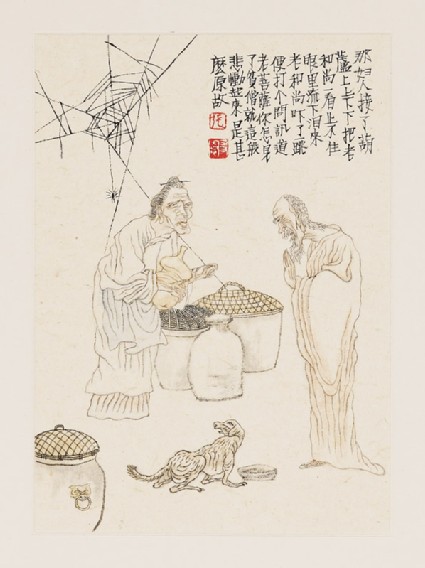 那婦人接了葫
蘆上上下下把老
和尚一看止不住
眼里流下泪來
老和尚吓了一跳
便打个問訊道
老菩薩你怎見
了貧僧就這般
悲慟起來是甚
麼原故